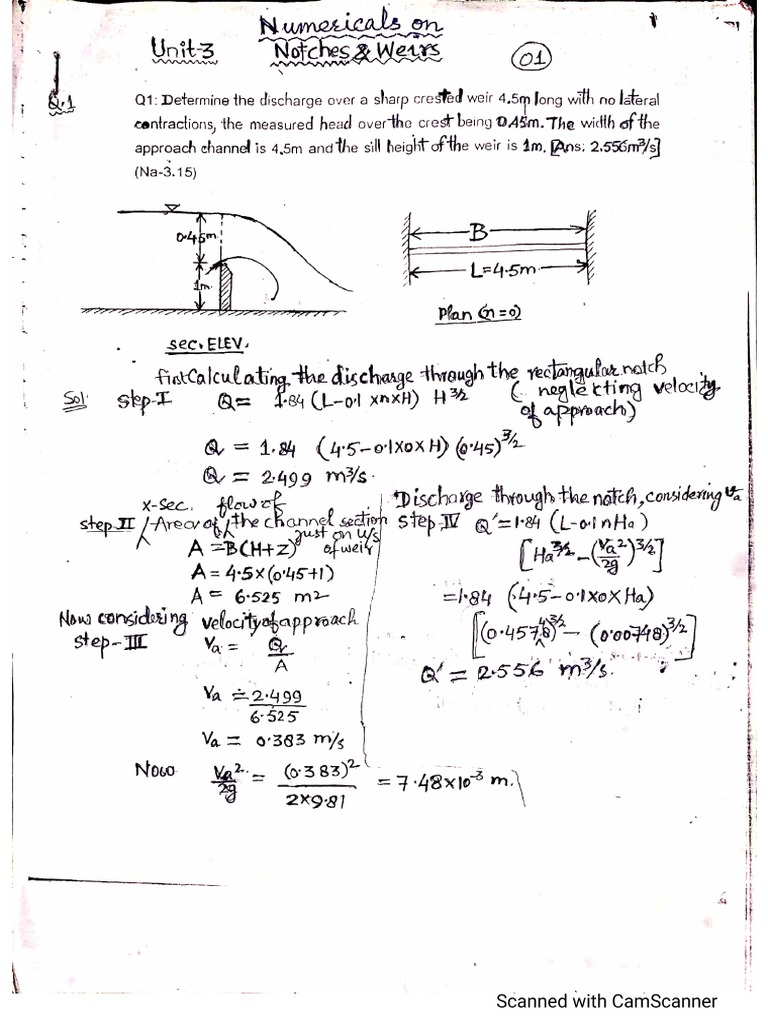 Numericals on
Unit-3 Notches & Weirs 01
Q.1
Q1: Determine the discharge over a sharp crested weir 4.5m long with no lateral
contractions, the measured head over the crest being 0.45m. The width of the
approach channel is 4.5m and the sill height of the weir is 1m. [Ans: 2.556m³/s]
(Na-3.15)
0.45m
1m
B
L=4.5m
Plan (n=0)
sec.ELEV.
first Calculating the discharge through the rectangular notch
Sol: Step-I Q= 1.84 (L-0.1 x n x H) H^3/2 (neglecting velocity
of approach)
Q = 1.84 (4.5-0.1x0xH) (0.45)^3/2
Q = 2.499 m³/s.
x-sec. flow of
step II Area of the channel section
just on u/s
A = B(H+Z) of weir
A = 4.5x(0.45+1)
A = 6.525 m2
Now considering velocity of approach
step-III Va = Q/A
Va = 2.499/6.525
Va = 0.383 m/s
Now Va²/2g = (0.383)²/2x9.81 = 7.48x10⁻³ m.
Discharge through the notch, considering Va
step IV Q' = 1.84 (L-0.1nHa)
[Ha^3/2 - (Va²/2g)^3/2]
=1.84 (4.5-0.1x0xHa)
[(0.4574)^3/2 - (0.00748)^3/2]
Q' = 2.556 m³/s.
Scanned with CamScanner